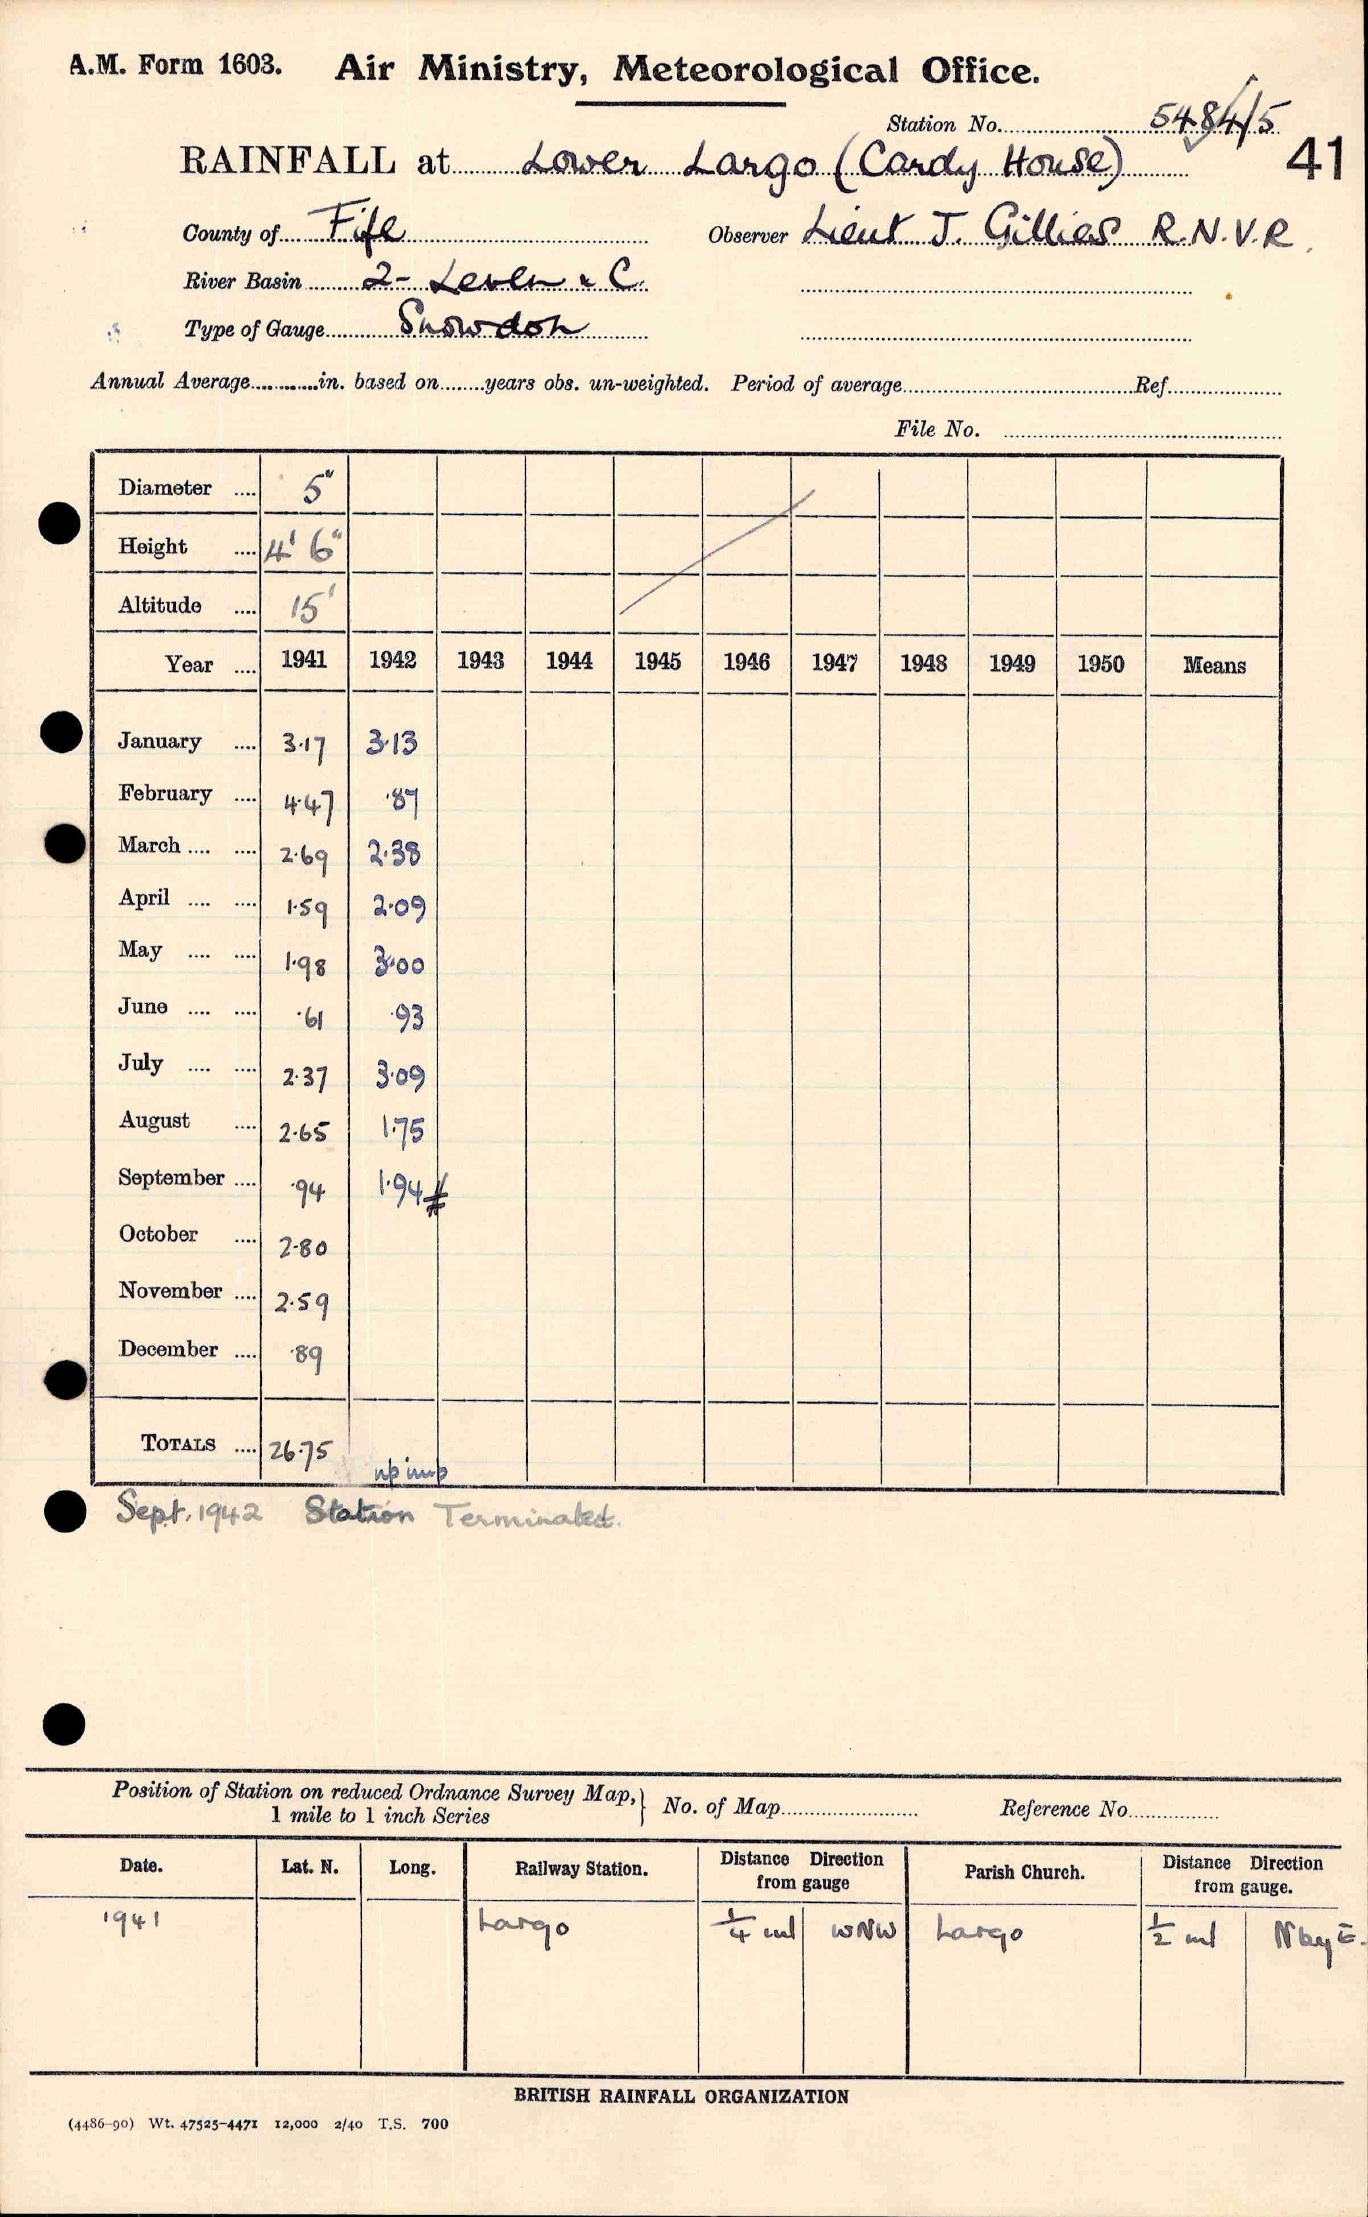 A.M. Form 1603. Air Ministry, Meteorological Office.
Station No. 5484/5
RAINFALL at Lower Largo (Cardy House) 41
County of Fife Observer Lieut J. Gillies R.N.V.R.
River Basin 2- Leven & C.
Type of Gauge Snowdon
Annual Average............in. based on........years obs. un-weighted. Period of average................Ref................
File No. ................
Diameter .... 5"
Height .... 4' 6"
Altitude .... 15'
Year .... 1941 1942 1943 1944 1945 1946 1947 1948 1949 1950 Means
January .... 3.17 3.13
February .... 4.47 .87
March .... .... 2.69 2.38
April .... .... 1.59 2.09
May .... .... 1.98 3.00
June .... .... .61 .93
July .... .... 2.37 3.09
August .... 2.65 1.75
September .... .94 1.94 #
October .... 2.80
November .... 2.59
December .... .89
TOTALS .... 26.75
Sept. 1942 Station Terminated.
Position of Station on reduced Ordnance Survey Map, } No. of Map................ Reference No................
1 mile to 1 inch Series
Date. Lat. N. Long. Railway Station. Distance Direction from gauge Parish Church. Distance Direction from gauge.
1941 Largo 1/4 ml WNW Largo 1/2 ml N by E.
BRITISH RAINFALL ORGANIZATION
(4486-90) Wt. 47525-4471 12,000 2/40 T.S. 700